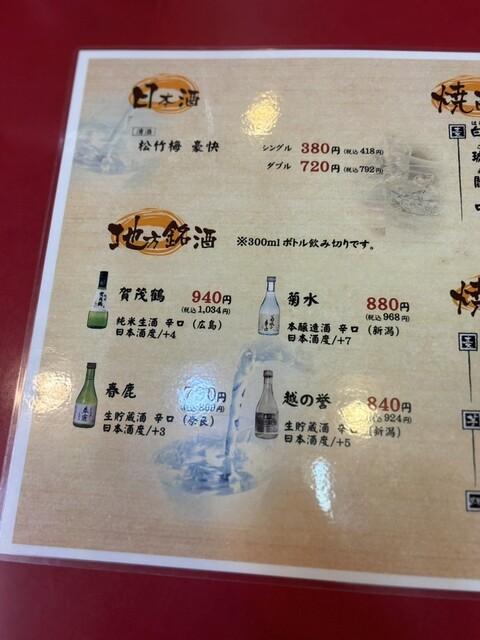 日本酒
清酒
松竹梅 豪快
シングル 380円 (税込418円)
ダブル 720円 (税込792円)
地方銘酒 ※300mlボトル飲み切りです。
賀茂鶴 940円
(税込1,034円)
純米生酒 辛口 (広島)
日本酒度/+4
菊水 880円
(税込968円)
本醸造酒 辛口 (新潟)
日本酒度/+7
春鹿 790円
(税込869円)
生貯蔵酒 辛口 (奈良)
日本酒度/+3
越の誉 840円
(税込924円)
生貯蔵酒 辛口 (新潟)
日本酒度/+5
焼
麦
焼
麦